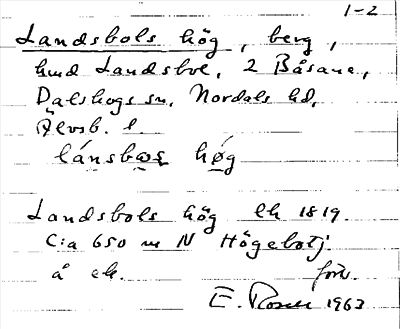 1-2
Landsbols hög, berg,
hmd Landsbol, 2 Båsane,
Dalskogs sn, Nordals hd,
Älvsb. l.
lánsbɷs høg
Landsbols hög ek 1819.
C:a 650 m N Högebotj.
å ek. förr.
E. Rosell 1963